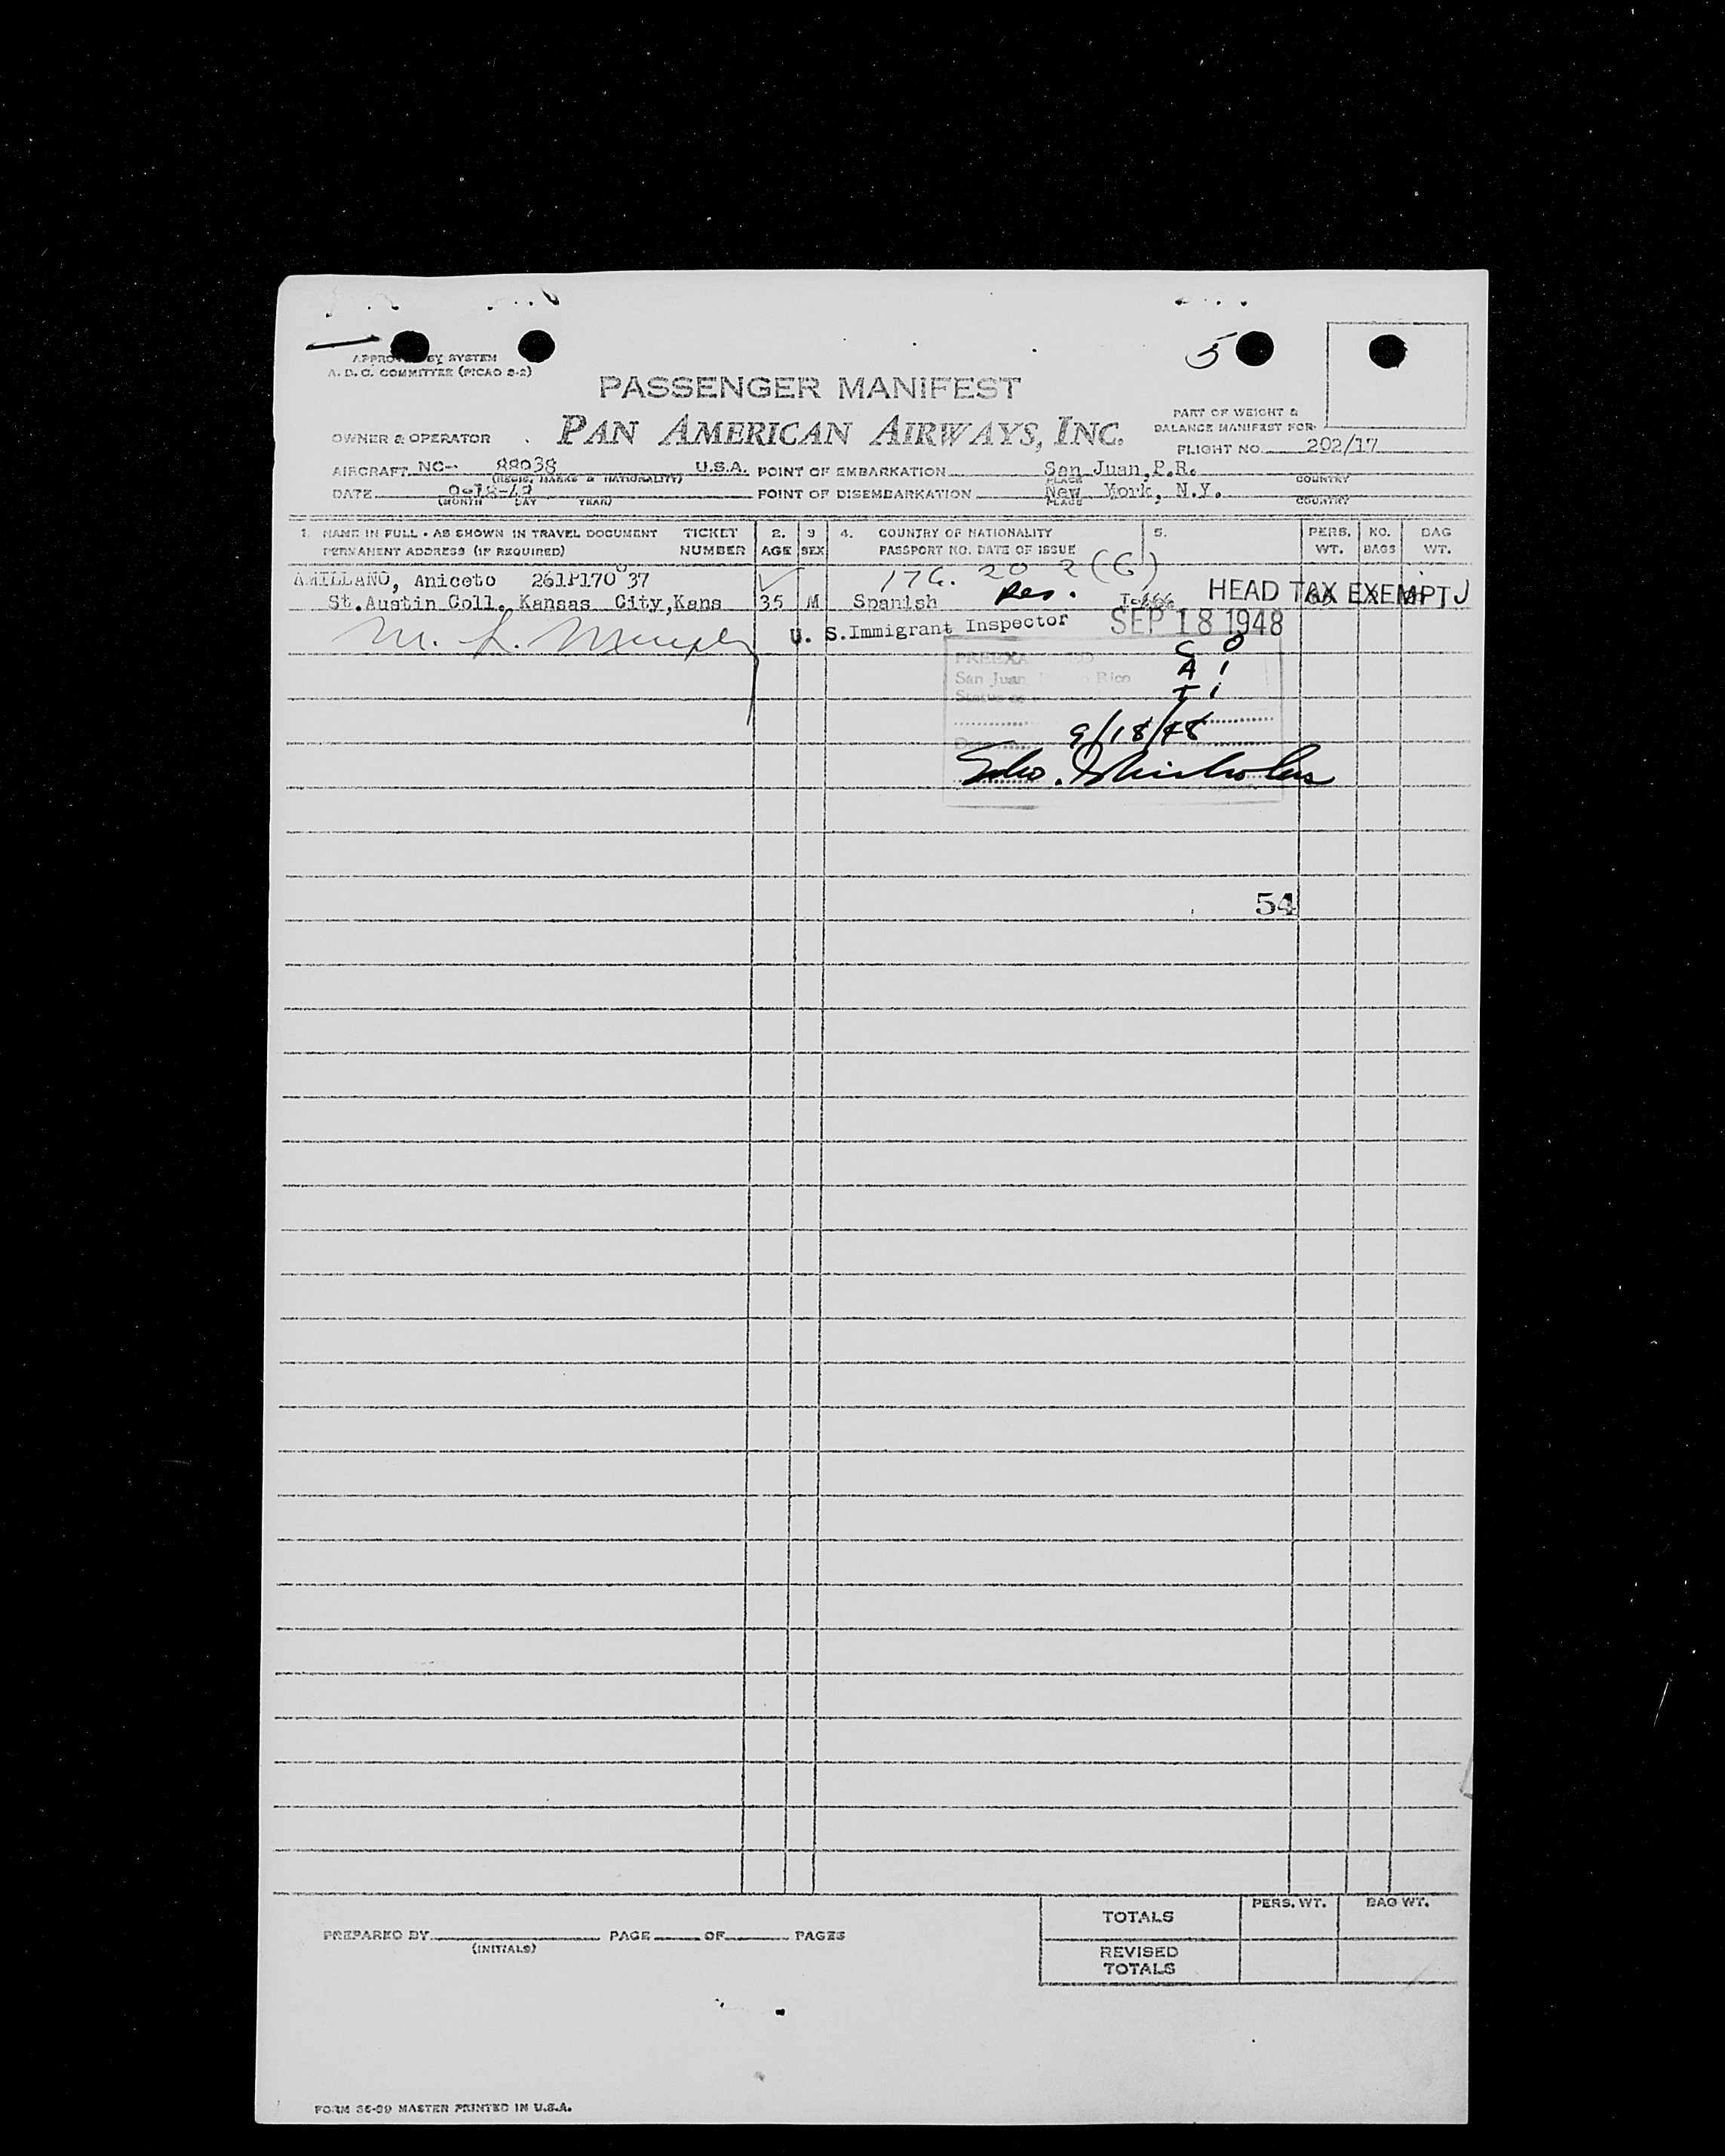 5
APPROVED BY SYSTEM
A. D. C. COMMITTEE (PICAO 2-2)
PASSENGER MANIFEST
PAN AMERICAN AIRWAYS, INC.
PART OF WEIGHT &
BALANCE MANIFEST FOR
OWNER & OPERATOR
FLIGHT NO. 202/17
AIRCRAFT NC-- 88038 U.S.A. POINT OF EMBARKATION San Juan, P.R.
(REGIS. MARKS & NATIONALITY) PLACE COUNTRY
DATE 9-18-48 POINT OF DISEMBARKATION New York, N.Y.
(MONTH DAY YEAR) PLACE COUNTRY
1. NAME IN FULL - AS SHOWN IN TRAVEL DOCUMENT TICKET 2. 3 4. COUNTRY OF NATIONALITY 5. PERS. NO. BAG
PERMANENT ADDRESS (IF REQUIRED) NUMBER AGE SEX PASSPORT NO. DATE OF ISSUE WT. BAGS WT.
AMILLANO, Aniceto 261P170 37 176. 20 2 (6)
St.Austin Coll. Kansas City,Kans 35 M Spanish Res. HEAD TAX EXEMPT
U. S.Immigrant Inspector SEP 18 1948
PREEXAMINED
San Juan, Rico
Status as
C 0
A 1
T 1
9/18/48
54
TOTALS PERS. WT. BAG WT.
PREPARED BY PAGE OF PAGES
(INITIALS)
REVISED
TOTALS
FORM 36-09 MASTER PRINTED IN U.S.A.